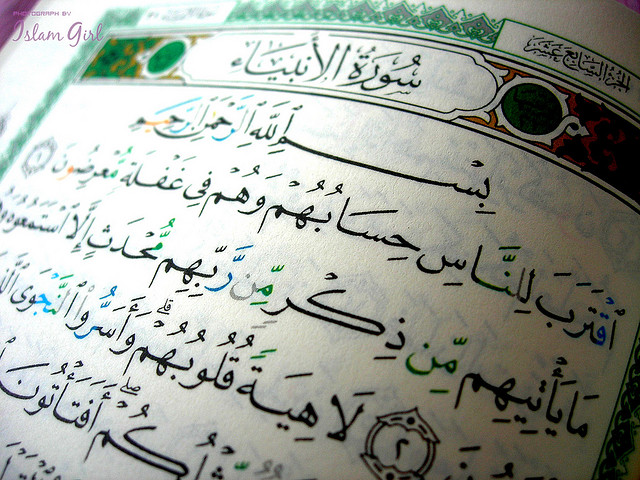 PHOTOGRAPH BY
Islam Girl
الجزء السابع عشر
سُورَةُ الأَنبيَاء
بِسْمِ اللَّهِ الرَّحْمَٰنِ الرَّحِيمِ
اقْتَرَبَ لِلنَّاسِ حِسَابُهُمْ وَهُمْ فِي غَفْلَةٍ مُّعْرِضُونَ ١
مَا يَأْتِيهِم مِّن ذِكْرٍ مِّن رَّبِّهِم مُّحْدَثٍ إِلَّا اسْتَمَعُوهُ
٢ لَاهِيَةً قُلُوبُهُمْ وَأَسَرُّوا النَّجْوَى
أَفَتَأْتُونَ